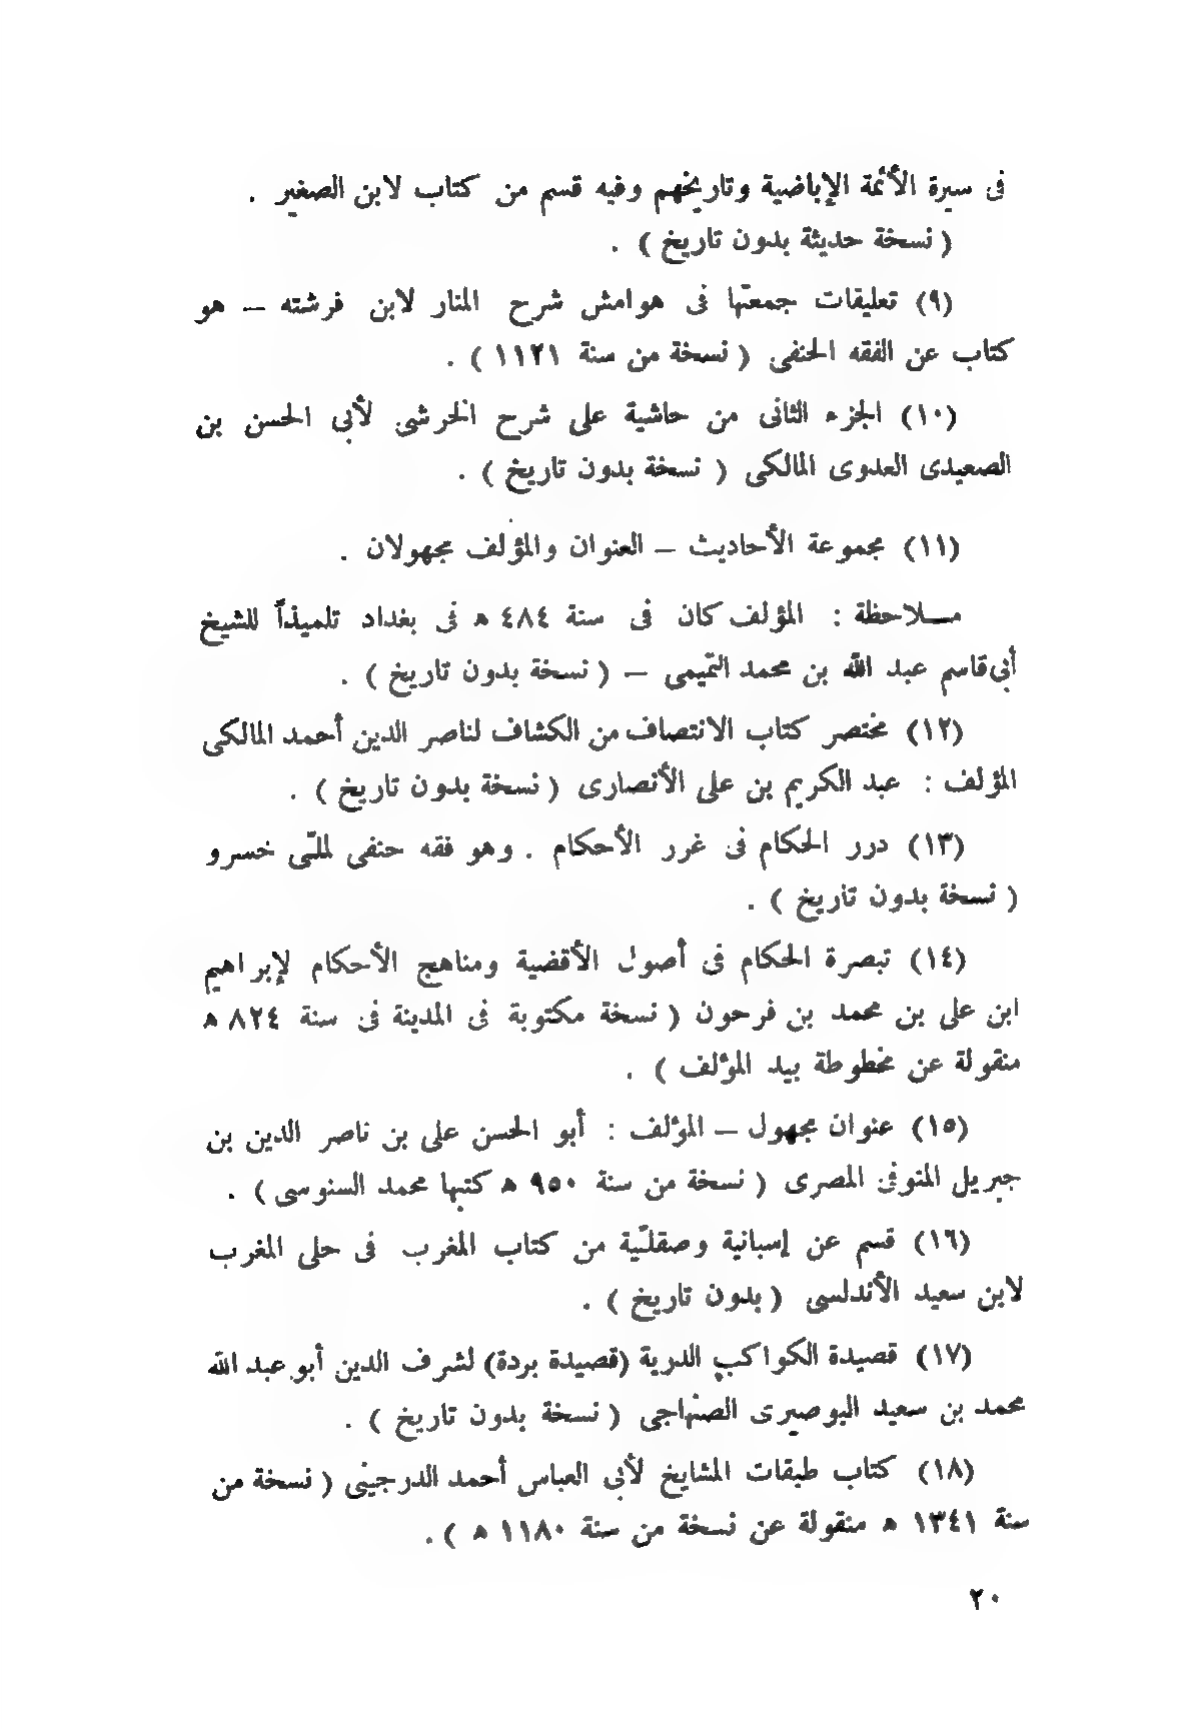 فى سيرة الأئمة الإباضية وتاريخهم وفيه قسم من كتاب لابن الصغير .
( نسخة حديثة بدون تاريخ ) .
(٩) تعليقات جمعتها فى هوامش شرح المنار لابن فرشته — هو
كتاب عن الفقه الحنفى ( نسخة من سنة ١١٢١ ) .
(١٠) الجزء الثانى من حاشية على شرح الخرشى لأبى الحسن بن
الصعيدى العدوى المالكى ( نسخة بدون تاريخ ) .
(١١) مجموعة الأحاديث — العنوان والمؤلف مجهولان .
مـلاحظة : المؤلف كان فى سنة ٤٨٤ ه فى بغداد تلميذاً للشيخ
أبى قاسم عبد الله بن محمد التميمى — ( نسخة بدون تاريخ ) .
(١٢) مختصر كتاب الانتصاف من الكشاف لناصر الدين أحمد المالكى
المؤلف : عبد الكريم بن على الأنصارى ( نسخة بدون تاريخ ) .
(١٣) درر الحكام فى غرر الأحكام . وهو فقه حنفى لملّى خسرو
( نسخة بدون تاريخ ) .
(١٤) تبصرة الحكام فى أصول الأقضية ومناهج الأحكام لإبراهيم
ابن على بن محمد بن فرحون ( نسخة مكتوبة فى المدينة فى سنة ٨٢٤ ه
منقولة عن مخطوطة بيد المؤلف ) .
(١٥) عنوان مجهول — المؤلف : أبو الحسن على بن ناصر الدين بن
جبريل المتوفى المصرى ( نسخة من سنة ٩٥٠ ه كتبها محمد السنوسى ) .
(١٦) قسم عن إسبانية وصقلّية من كتاب المغرب فى حلى المغرب
لابن سعيد الأندلسى ( بدون تاريخ ) .
(١٧) قصيدة الكواكب الدرية (قصيدة بردة) لشرف الدين أبو عبد الله
محمد بن سعيد البوصيرى الصنهاجى ( نسخة بدون تاريخ ) .
(١٨) كتاب طبقات المشايخ لأبى العباس أحمد الدرجينى ( نسخة من
سنة ١٣٤١ ه منقولة عن نسخة من سنة ١١٨٠ ه ) .
٢٠